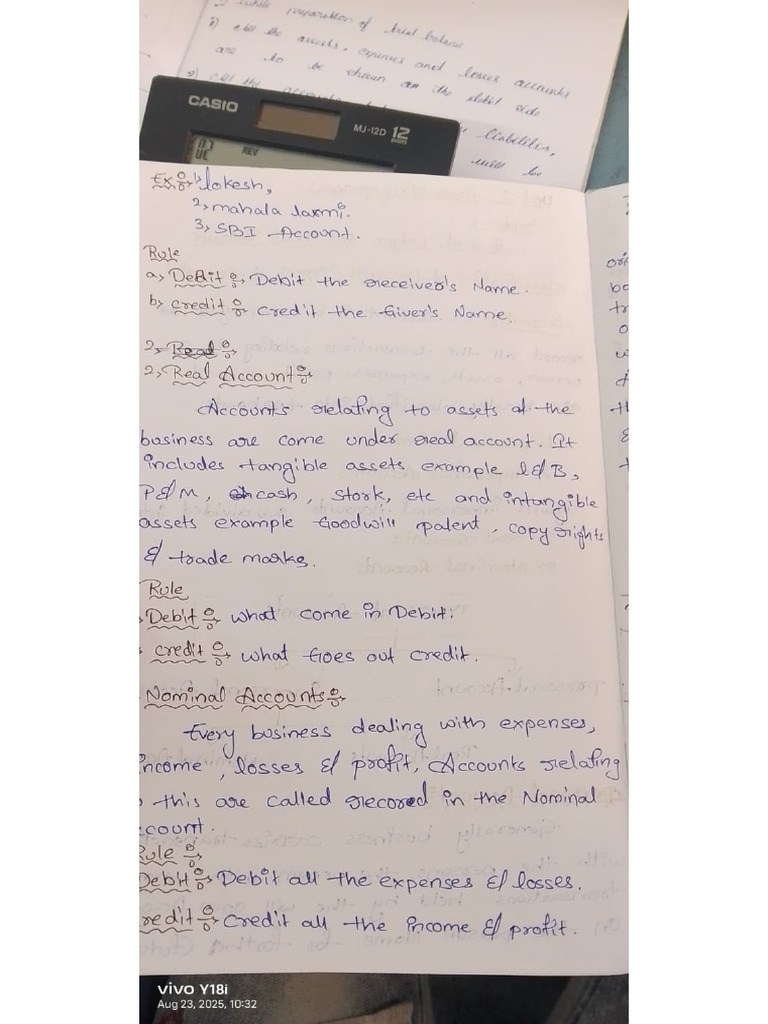 while preparation of trial balance
all the assets, expenses and losses accounts
are to be shown on the debit side
all the
liabilities,
will be
CASIO
MJ-12D 12
DIGITS
REV
Ex 1, lokesh,
2, mahala laxmi.
3, SBI Account.
Rule
a, Debit Debit the receiver's Name.
b, credit Credit the Giver's Name.
2, Real
2, Real Account
Accounts relating to assets of the
business are come under real account. It
includes tangible assets example l&B,
P&M, cash, stork, etc and intangible
assets example Goodwill patent, copy rights
& trade marks.
Rule
Debit what come in Debit.
credit what Goes out credit.
Nominal Accounts
Every business dealing with expenses,
income, losses & profit, Accounts relating
this are called record in the Nominal
ccount.
Rule
Debit Debit all the expenses & losses.
redit Credit all the income & profit.
vivo Y18i
Aug 23, 2025, 10:32